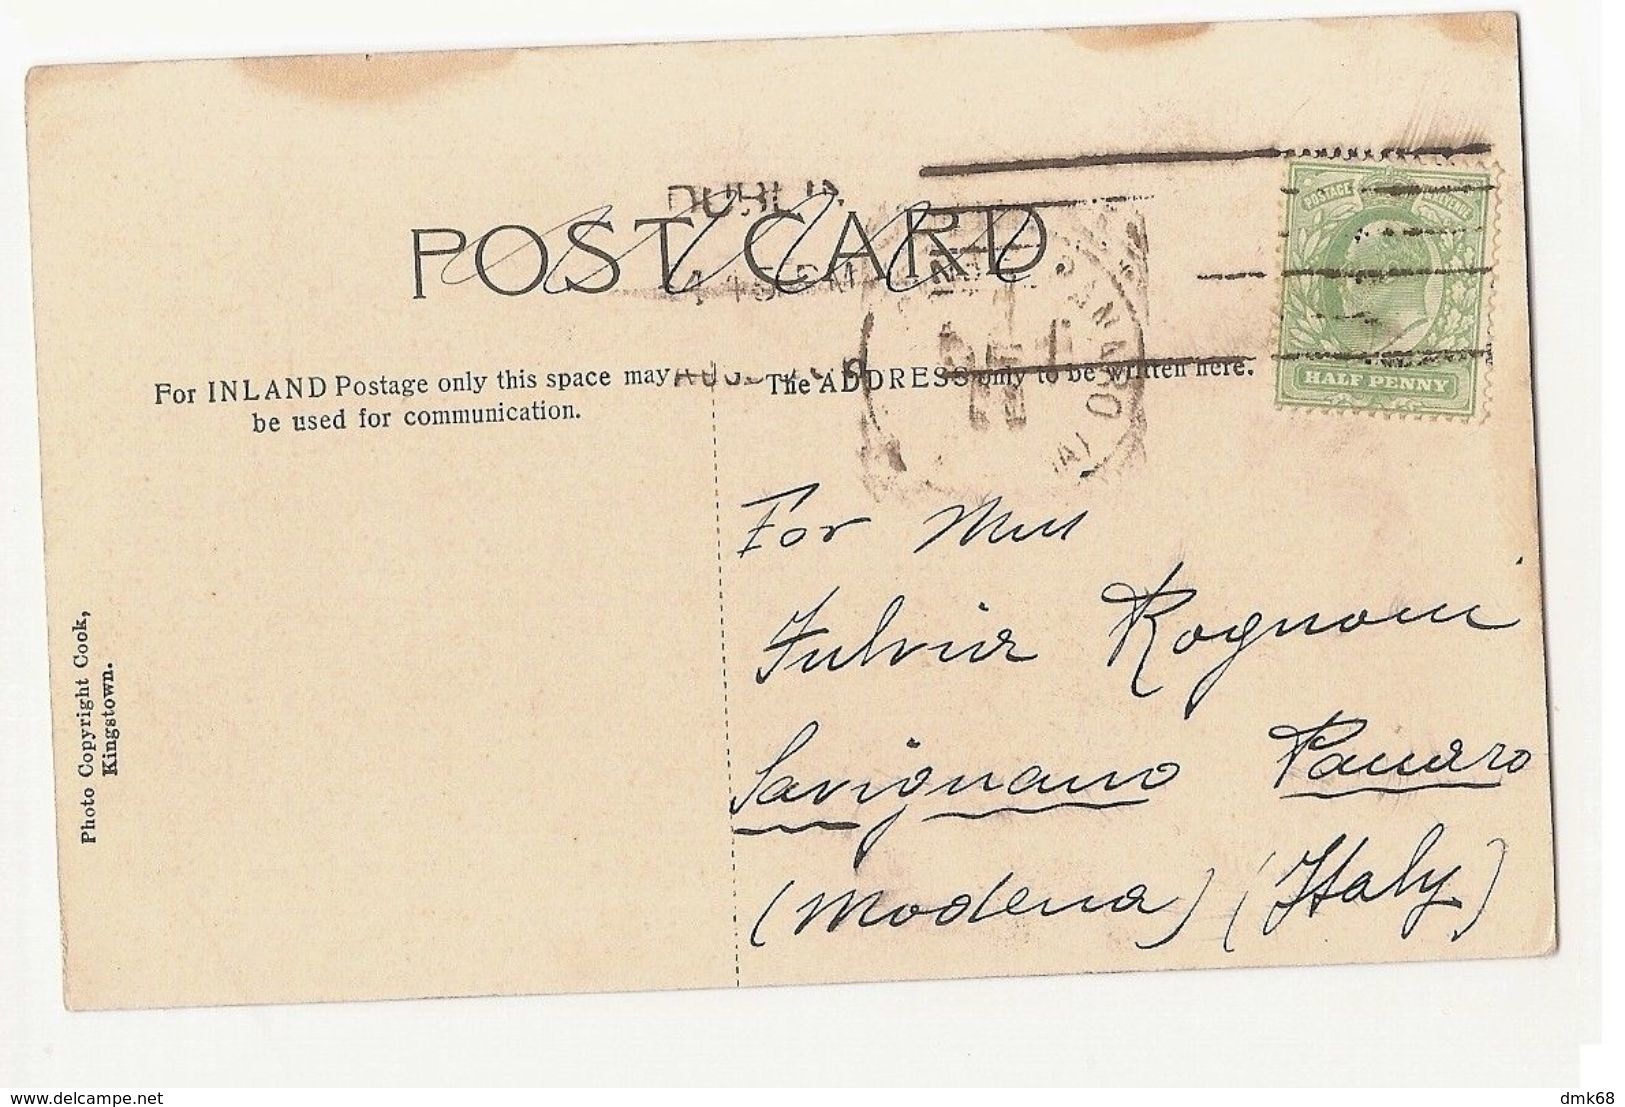 DUBLIN
POST CARD
4 45 PM
For INLAND Postage only this space may
be used for communication.
The ADDRESS only to be written here.
POSTAGE REVENUE
HALF PENNY
For Miss
Fulvia Rognoni
Savignano Panaro
(Modena) (Italy)
Photo Copyright Cook,
Kingstown.
www.delcampe.net
dmk68